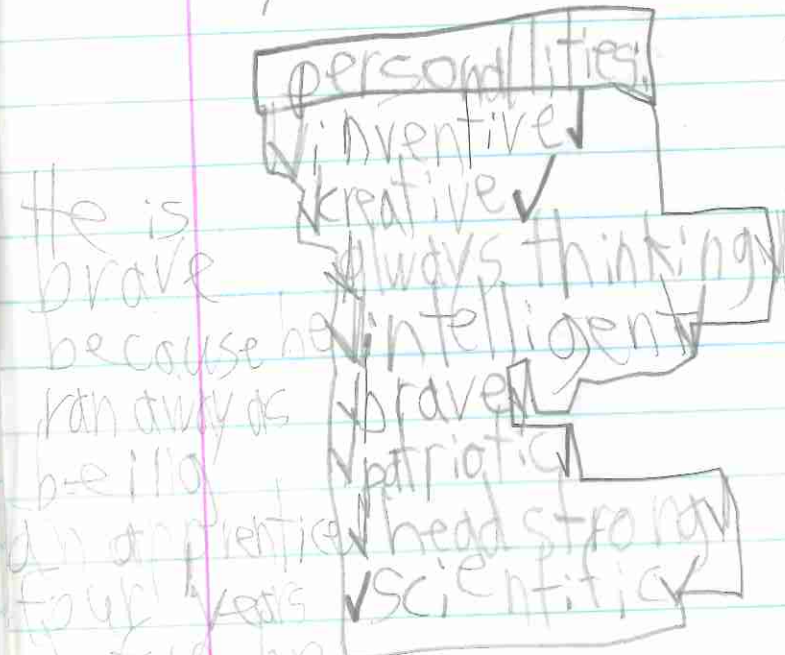 personallities
inventive
creative
always thinking
intelligent
brave
patriotic
headstrong
scientific
He is
brave
because he
ran away as
being
an apprentice
four years